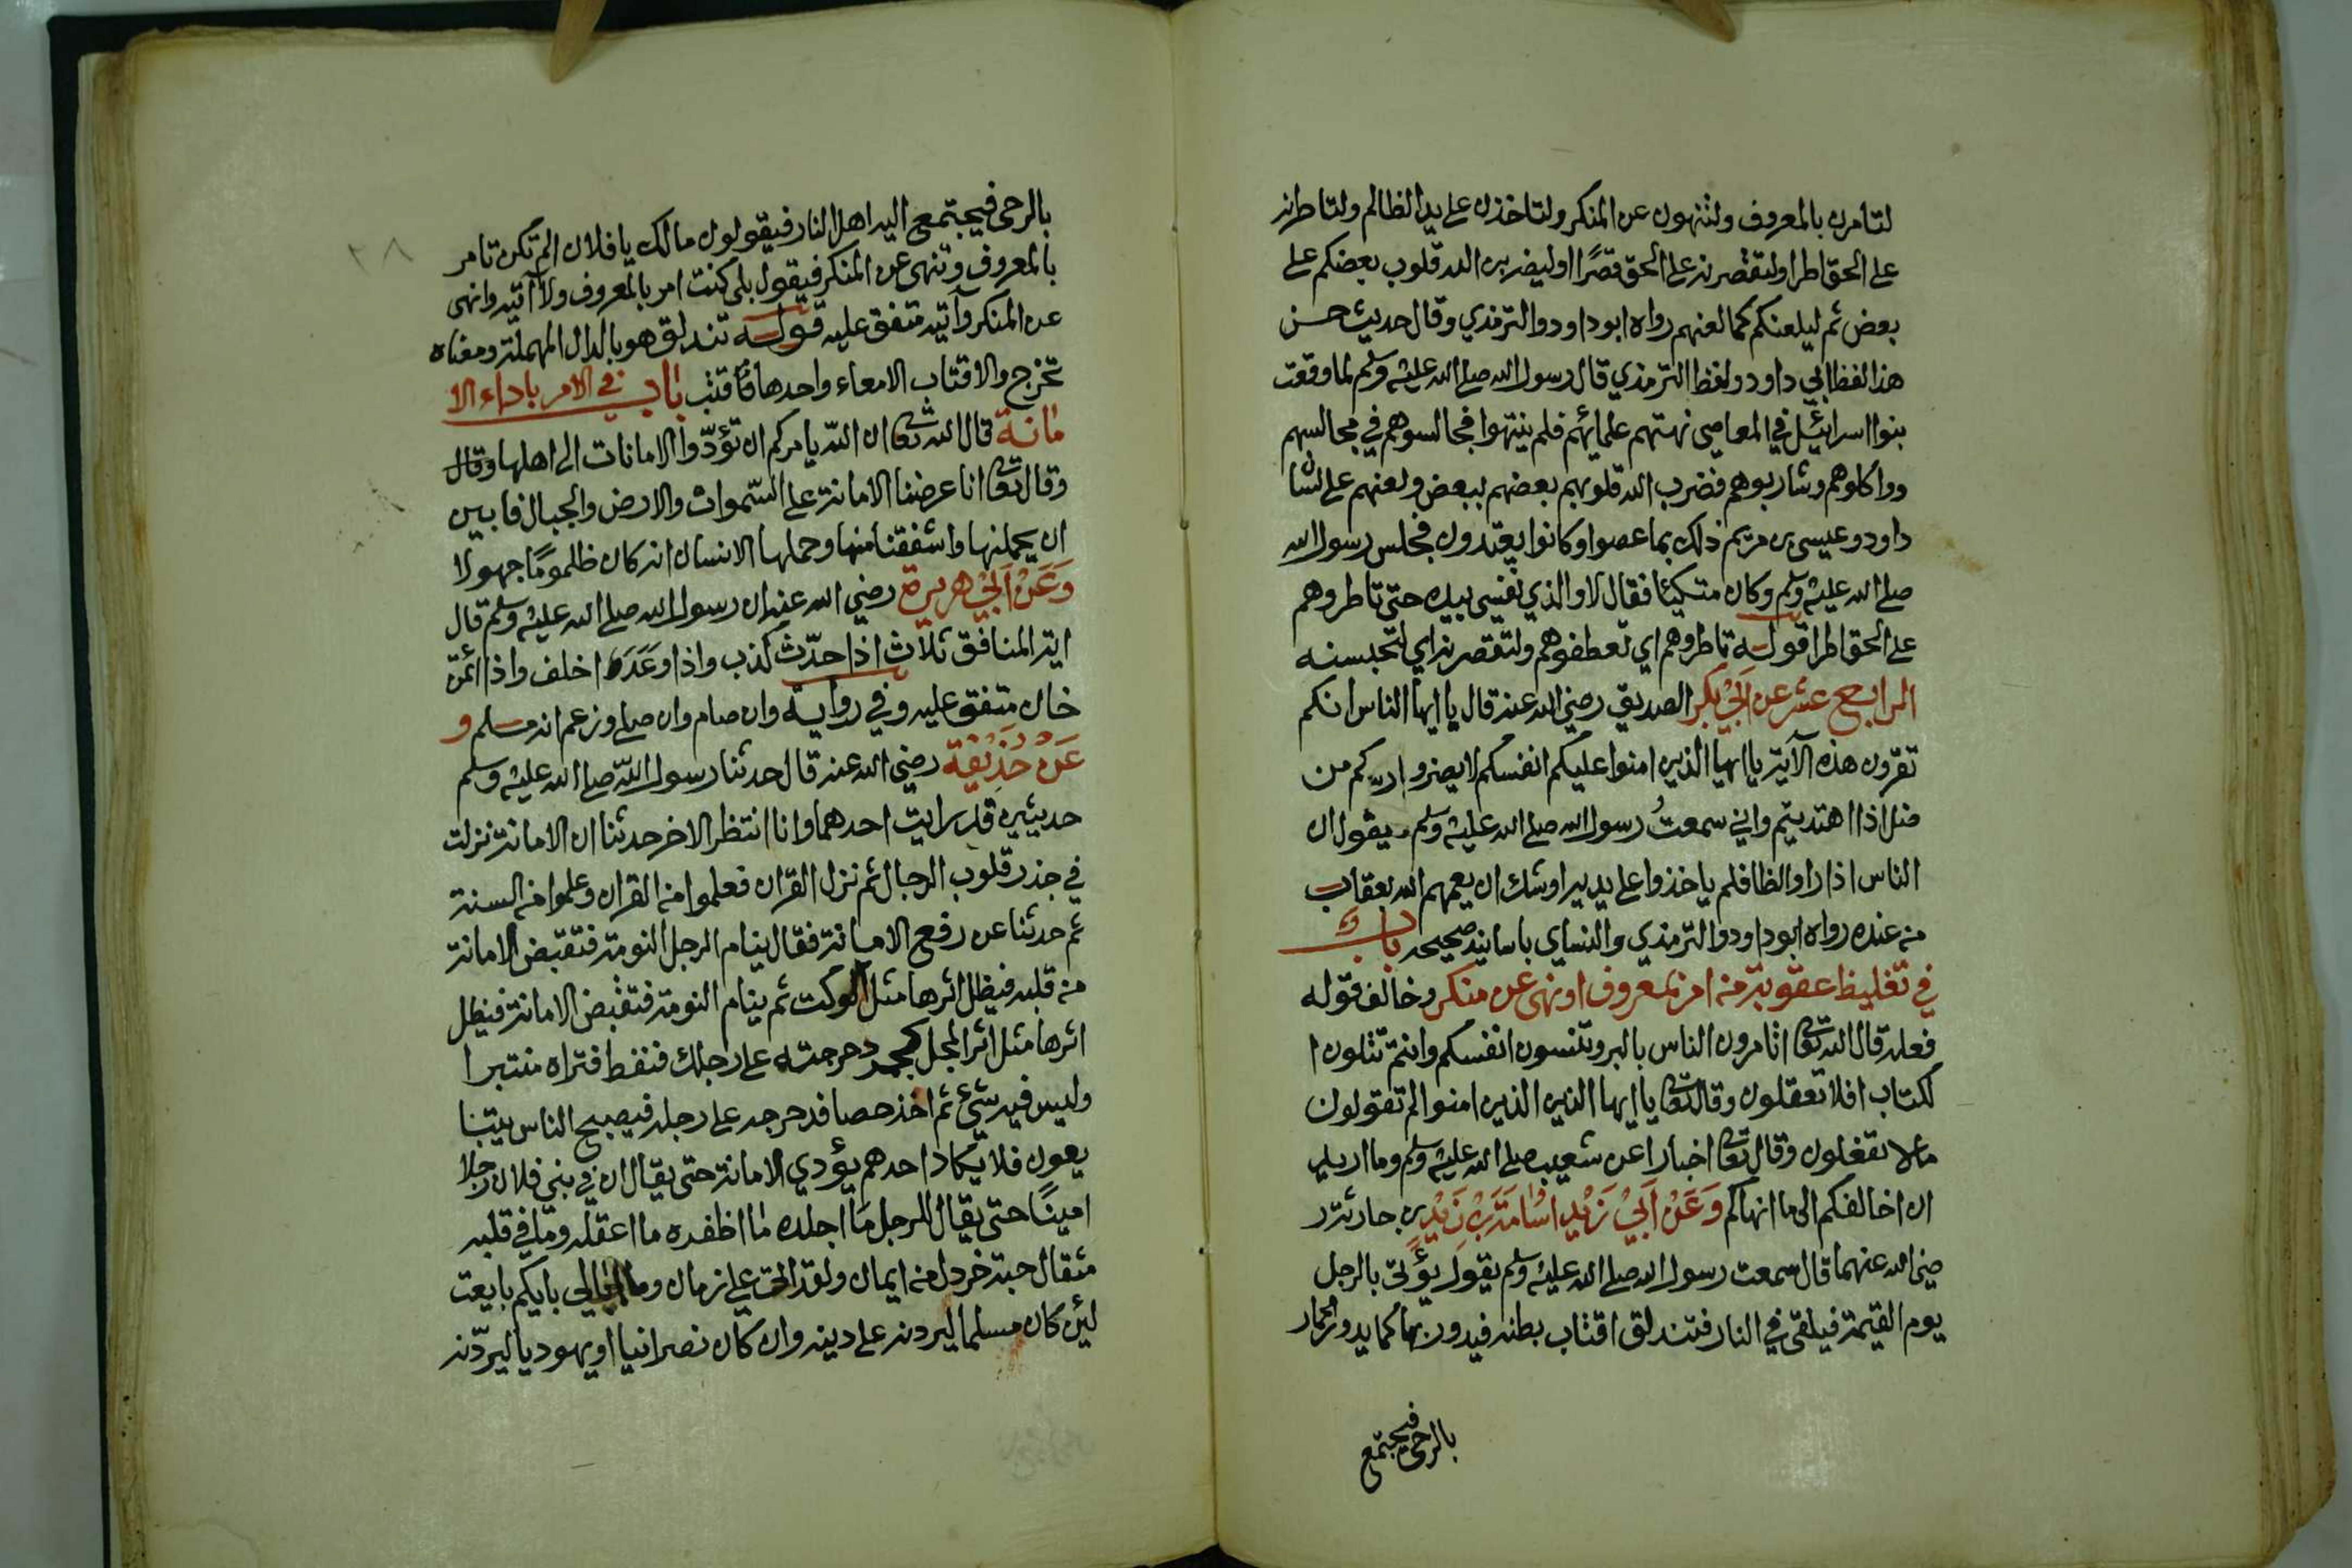 لتامرن بالمعروف ولتنهون عن المنكر ولتاخذن على يد الظالم ولتاطرنه
على الحق اطرا ولتقصرنه على الحق قصرًا اوليضربن الله قلوب بعضكم على
بعض ثم ليلعنكم كما لعنهم رواه ابوداود والترمذي وقال حديث حسن
هذا لفظ ابي داود ولفظ الترمذي قال رسول الله صلى الله عليه وسلم لما وقعت
بنوا اسرائيل في المعاصي نهتهم علمائهم فلم ينتهوا فجالسوهم في مجالسهم
وواكلوهم وشاربوهم فضرب الله قلوبهم بعضهم ببعض ولعنهم على لسان
داود وعيسى بن مريم ذلك بما عصوا وكانوا يعتدون فجلس رسول الله
صلى الله عليه وسلم وكان متكيئا فقال لا والذي نفسي بيده حتى تاطروهم
على الحق اطرا قوله تاطروهم اي تعطفوهم ولتقصرنه اي لتحبسنه
الرابع عشر عن ابي بكر الصديق رضي الله عنه قال يا ايها الناس انكم
تقرون هذه الآية يا ايها الذين امنوا عليكم انفسكم لا يضركم من
ضل اذا اهتديتم واني سمعتُ رسول الله صلى الله عليه وسلم يقول ان
الناس اذا راوا الظا فلم ياخذوا على يديه اوشك ان يعمهم الله بعقاب
منه عنده رواه ابوداود والترمذي والنساي باسانيد صحيحه باب
في تغليظ عقوبة من امر بمعروف اونهى عن منكر وخالف قوله
فعله قال الله تعا اتامرون الناس بالبر وتنسون انفسكم وانتم تتلون ا
لكتاب افلا تعقلون وقال تعا يا ايها الذين الذين امنوا لم تقولون
مالا تفعلون وقال تعا اخبارا عن شعيب صلى الله عليه وسلم وما اريد
ان اخالفكم الى ما انهاكم وَعَنْ اَبِيْ زَيْدٍ اسْامَةَ بْنِ زَيْدِ بن حارثة ر
ضي الله عنهما قال سمعت رسول الله صلى الله عليه وسلم يقول يؤتى بالرجل
يوم القيمة فيلقى في النار فتندلق اقتاب بطنه فيدور بها كما يدور الحمار
بالرحى فيجتمع
٢٨
بالرحى فيجتمع اليه اهل النار فيقولون مالك يا فلان الم تكن تامر
بالمعروف وتنهى عن المنكر فيقول بلى كنت امر بالمعروف ولا آتيه وانهى
عن المنكر وآتيه متفق عليه قوله تندلق هو بالدال المهملة ومعناه
تخرج والاقتاب الامعاء واحدها قتب باب في الامر باداء الا
مانة قال الله تعا ان الله يامركم ان تؤدّوا الامانات الى اهلها وقال
وقال تعا انا عرضنا الامانة على السّموات والارض والجبال فابين
ان يحملنها واشفقنا منها وحملها الانسان انه كان ظلمومًا جهولا
وَعَنْ اَبِيْ هريرة رضي الله عنه ان رسول الله صلى الله عليه وسلم قال
اية المنافق ثلاث اذا حدّث كذب واذا وَعَدَ اخلف واذا ائتمن
خان متفق عليه وفي رواية وان صام وان صلى وزعم انه مسلم و
عَنْ حُذَيْفَة رضي الله عنه قال حدثنا رسول الله صلى الله عليه وسلم
حديثين قد رايت احدهما وانا انتظر الاخر حدثنا ان الامانة نزلت
في جذر قلوب الرجال ثم نزل القران فعلموا من القران وعلموا من السنة
ثم حدثنا عن رفع الامانة فقال ينام الرجل النومة فتقبض الامانة
من قلبه فيظل اثرها مثل الوكت ثم ينام النومة فتقبض الامانة فيظل
اثرها مثل اثر المجل كجمر دحرجته على رجلك فنفط فتراه منتبرا
وليس فيه شيئ ثم اخذ حصا فدحرجه على رجله فيصبح الناس يتبا
يعون فلا يكاد احدهم يؤدي الامانة حتى يقال ان في بني فلان رجلا
امينًا حتى يقال للرجل ما اجلده ما اظفره ما اعقله وما في قلبه
مثقال حبة خردل من ايمان ولقد اتى علي زمان وما ابالي بايكم بايعت
لئن كان مسلما ليردنه على دينه وان كان نصرانيا او يهوديا ليردّنه